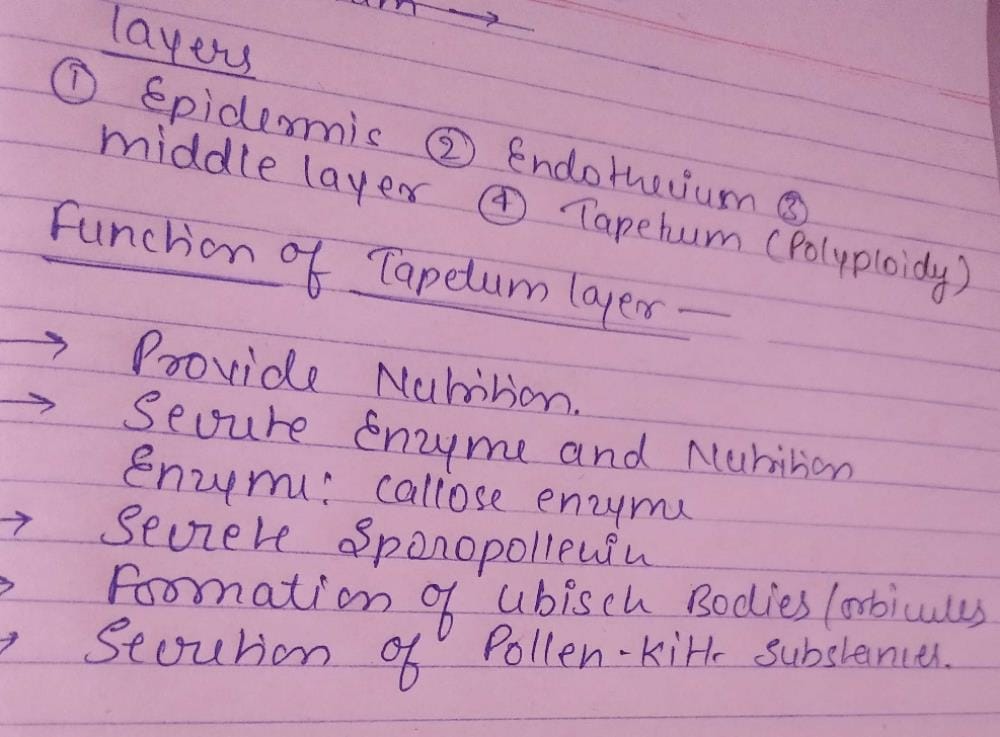 layers
① Epidermis ② Endothecium ③
middle layer ④ Tapetum (Polyploidy)
Function of Tapetum layer —
→ Provide Nutrition.
→ Secrete Enzyme and Nutrition
Enzyme: callose enzyme
→ Secrete Sporopollenin
→ Formation of Ubisch Bodies/orbicules
→ Secretion of Pollen-kitt substances.